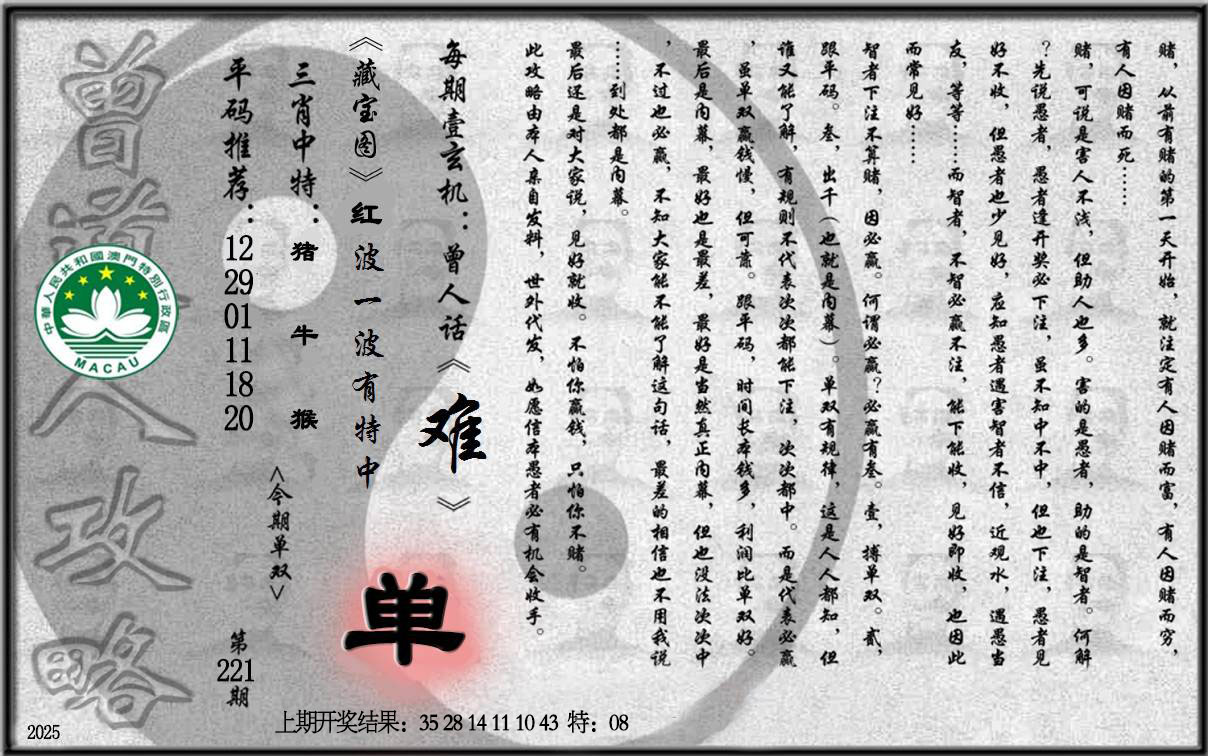 赌，从前有赌的第一天开始，就注定有人因赌而富，有人因赌而穷，
有人因赌而死……
赌，可说是害人不浅，但助人也多。害的是愚者，助的是智者。何解
？先说愚者，愚者逢开奖必下注，虽不知中不中，但也下注，愚者见
好不收，但愚者也少见好，应知愚者遇害智者不信，近观水，遇愚当
友，等等……而智者，不智必赢不注，能下能收，见好即收，也因此
而常见好……
智者下注不算赌，因必赢。何谓必赢？必赢有叁。壹，搏单双。贰，
跟平码。叁，出千（也就是内幕）。单双有规律，这是人人都知，但
谁又能了解，有规则不代表次次都能下注，次次都中。而是代表必赢
，虽单双赢钱慢，但可靠。跟平码，时间长本钱多，利润比单双好。
最后是内幕，最好也是最差，最好是当然真正内幕，但也没法次次中
，不过也必赢，不知大家能不能了解这句话，最差的相信也不用我说
……到处都是内幕。
最后还是对大家说，见好就收。不怕你赢钱，只怕你不赌。
此攻略由本人亲自发料，世外代发，如愿信本愚者必有机会收手。
每期壹玄机：曾人话《难》
《藏宝图》红波一波有特中
三肖中特：猪 牛 猴
<今期单双>
单
平码推荐：
12
29
01
11
18
20
第
221
期
曾道人攻略
中華人民共和國澳門特別行政區
MACAU
上期开奖结果：35 28 14 11 10 43 特：08
2025